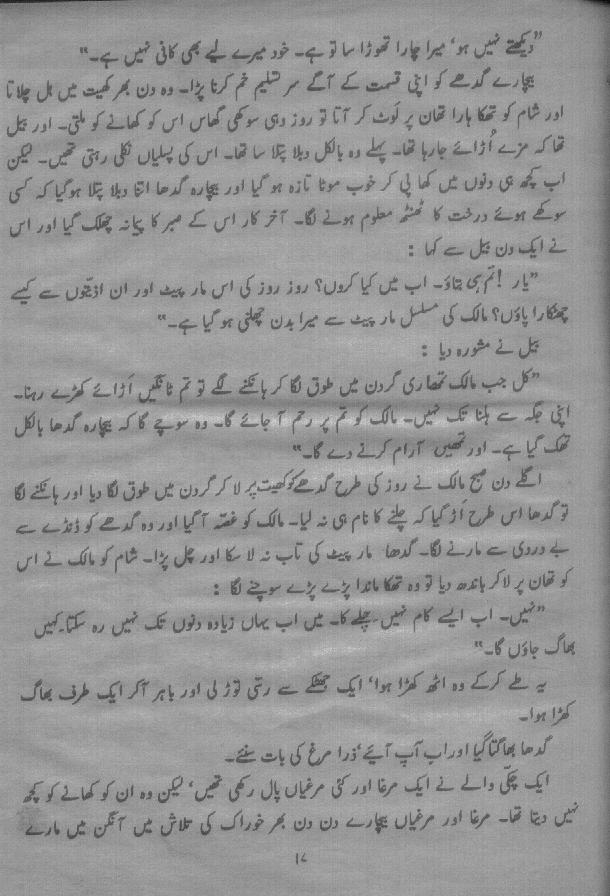 "دیکھتے نہیں ہو، میرا چارا تھوڑا سا تو ہے۔ خود میرے لیے بھی کافی نہیں ہے۔"
بیچارے گدھے کو اپنی قسمت کے آگے سر تسلیم خم کرنا پڑا۔ وہ دن بھر کھیت میں ہل چلاتا
اور شام کو تھکا ہارا تھان پر لَوٹ کر آتا تو روز وہی سوکھی گھاس اس کو کھانے کو ملتی۔ اور بیل
تھا کہ مزے اُڑائے جارہا تھا۔ پہلے وہ بالکل دبلا پتلا سا تھا۔ اس کی پسلیاں نکلی رہتی تھیں۔ لیکن
اب کچھ ہی دنوں میں کھا پی کر خوب موٹا تازہ ہو گیا اور بیچارہ گدھا اتنا دبلا پتلا ہوگیا کہ کسی
سوکھے ہوئے درخت کا ٹھنٹھ معلوم ہونے لگا۔ آخر کار اس کے صبر کا پیمانہ چھلک گیا اور اس
نے ایک دن بیل سے کہا :
"یار! تم ہی بتاؤ۔ اب میں کیا کروں؟ روز روز کی اس مار پیٹ اور ان اذیّتوں سے کیسے
چھٹکارا پاؤں؟ مالک کی مسلسل مار پیٹ سے میرا بدن چھلنی ہو گیا ہے۔"
بیل نے مشورہ دیا :
"کل جب مالک تمھاری گردن میں طوق لگا کر ہانکنے لگے تو تم ٹانگیں اَڑائے کھڑے رہنا۔
اپنی جگہ سے ہلنا تک نہیں۔ مالک کو تم پر رحم آ جائے گا۔ وہ سوچے گا کہ بیچارہ گدھا بالکل
تھک گیا ہے۔ اور تمھیں آرام کرنے دے گا۔"
اگلے دن صبح مالک نے روز کی طرح گدھے کو کھیت پر لا کر گردن میں طوق لگا دیا اور ہانکنے لگا
تو گدھا اس طرح اَڑ گیا کہ چلنے کا نام ہی نہ لیا۔ مالک کو غصّہ آگیا اور وہ گدھے کو ڈنڈے سے
بے دردی سے مارنے لگا۔ گدھا مار پیٹ کی تاب نہ لا سکا اور چل پڑا۔ شام کو مالک نے اس
کو تھان پر لا کر باندھ دیا تو وہ تھکا ماندا پڑے پڑے سوچنے لگا :
"نہیں۔ اب ایسے کام نہیں چلے گا۔ میں اب یہاں زیادہ دنوں تک نہیں رہ سکتا۔ کہیں
بھاگ جاؤں گا۔"
یہ طے کرکے وہ اٹھ کھڑا ہوا، ایک جھٹکے سے رسّی توڑ لی اور باہر آکر ایک طرف بھاگ
کھڑا ہوا۔
گدھا بھاگتا گیا اور اب آپ آیئے، ذرا مرغ کی بات سنئے۔
ایک چکّی والے نے ایک مرغا اور کئی مرغیاں پال رکھی تھیں، لیکن وہ ان کو کھانے کو کچھ
نہیں دیتا تھا۔ مرغا اور مرغیاں بیچارے دن دن بھر خوراک کی تلاش میں آنگن میں مارے
۱۷